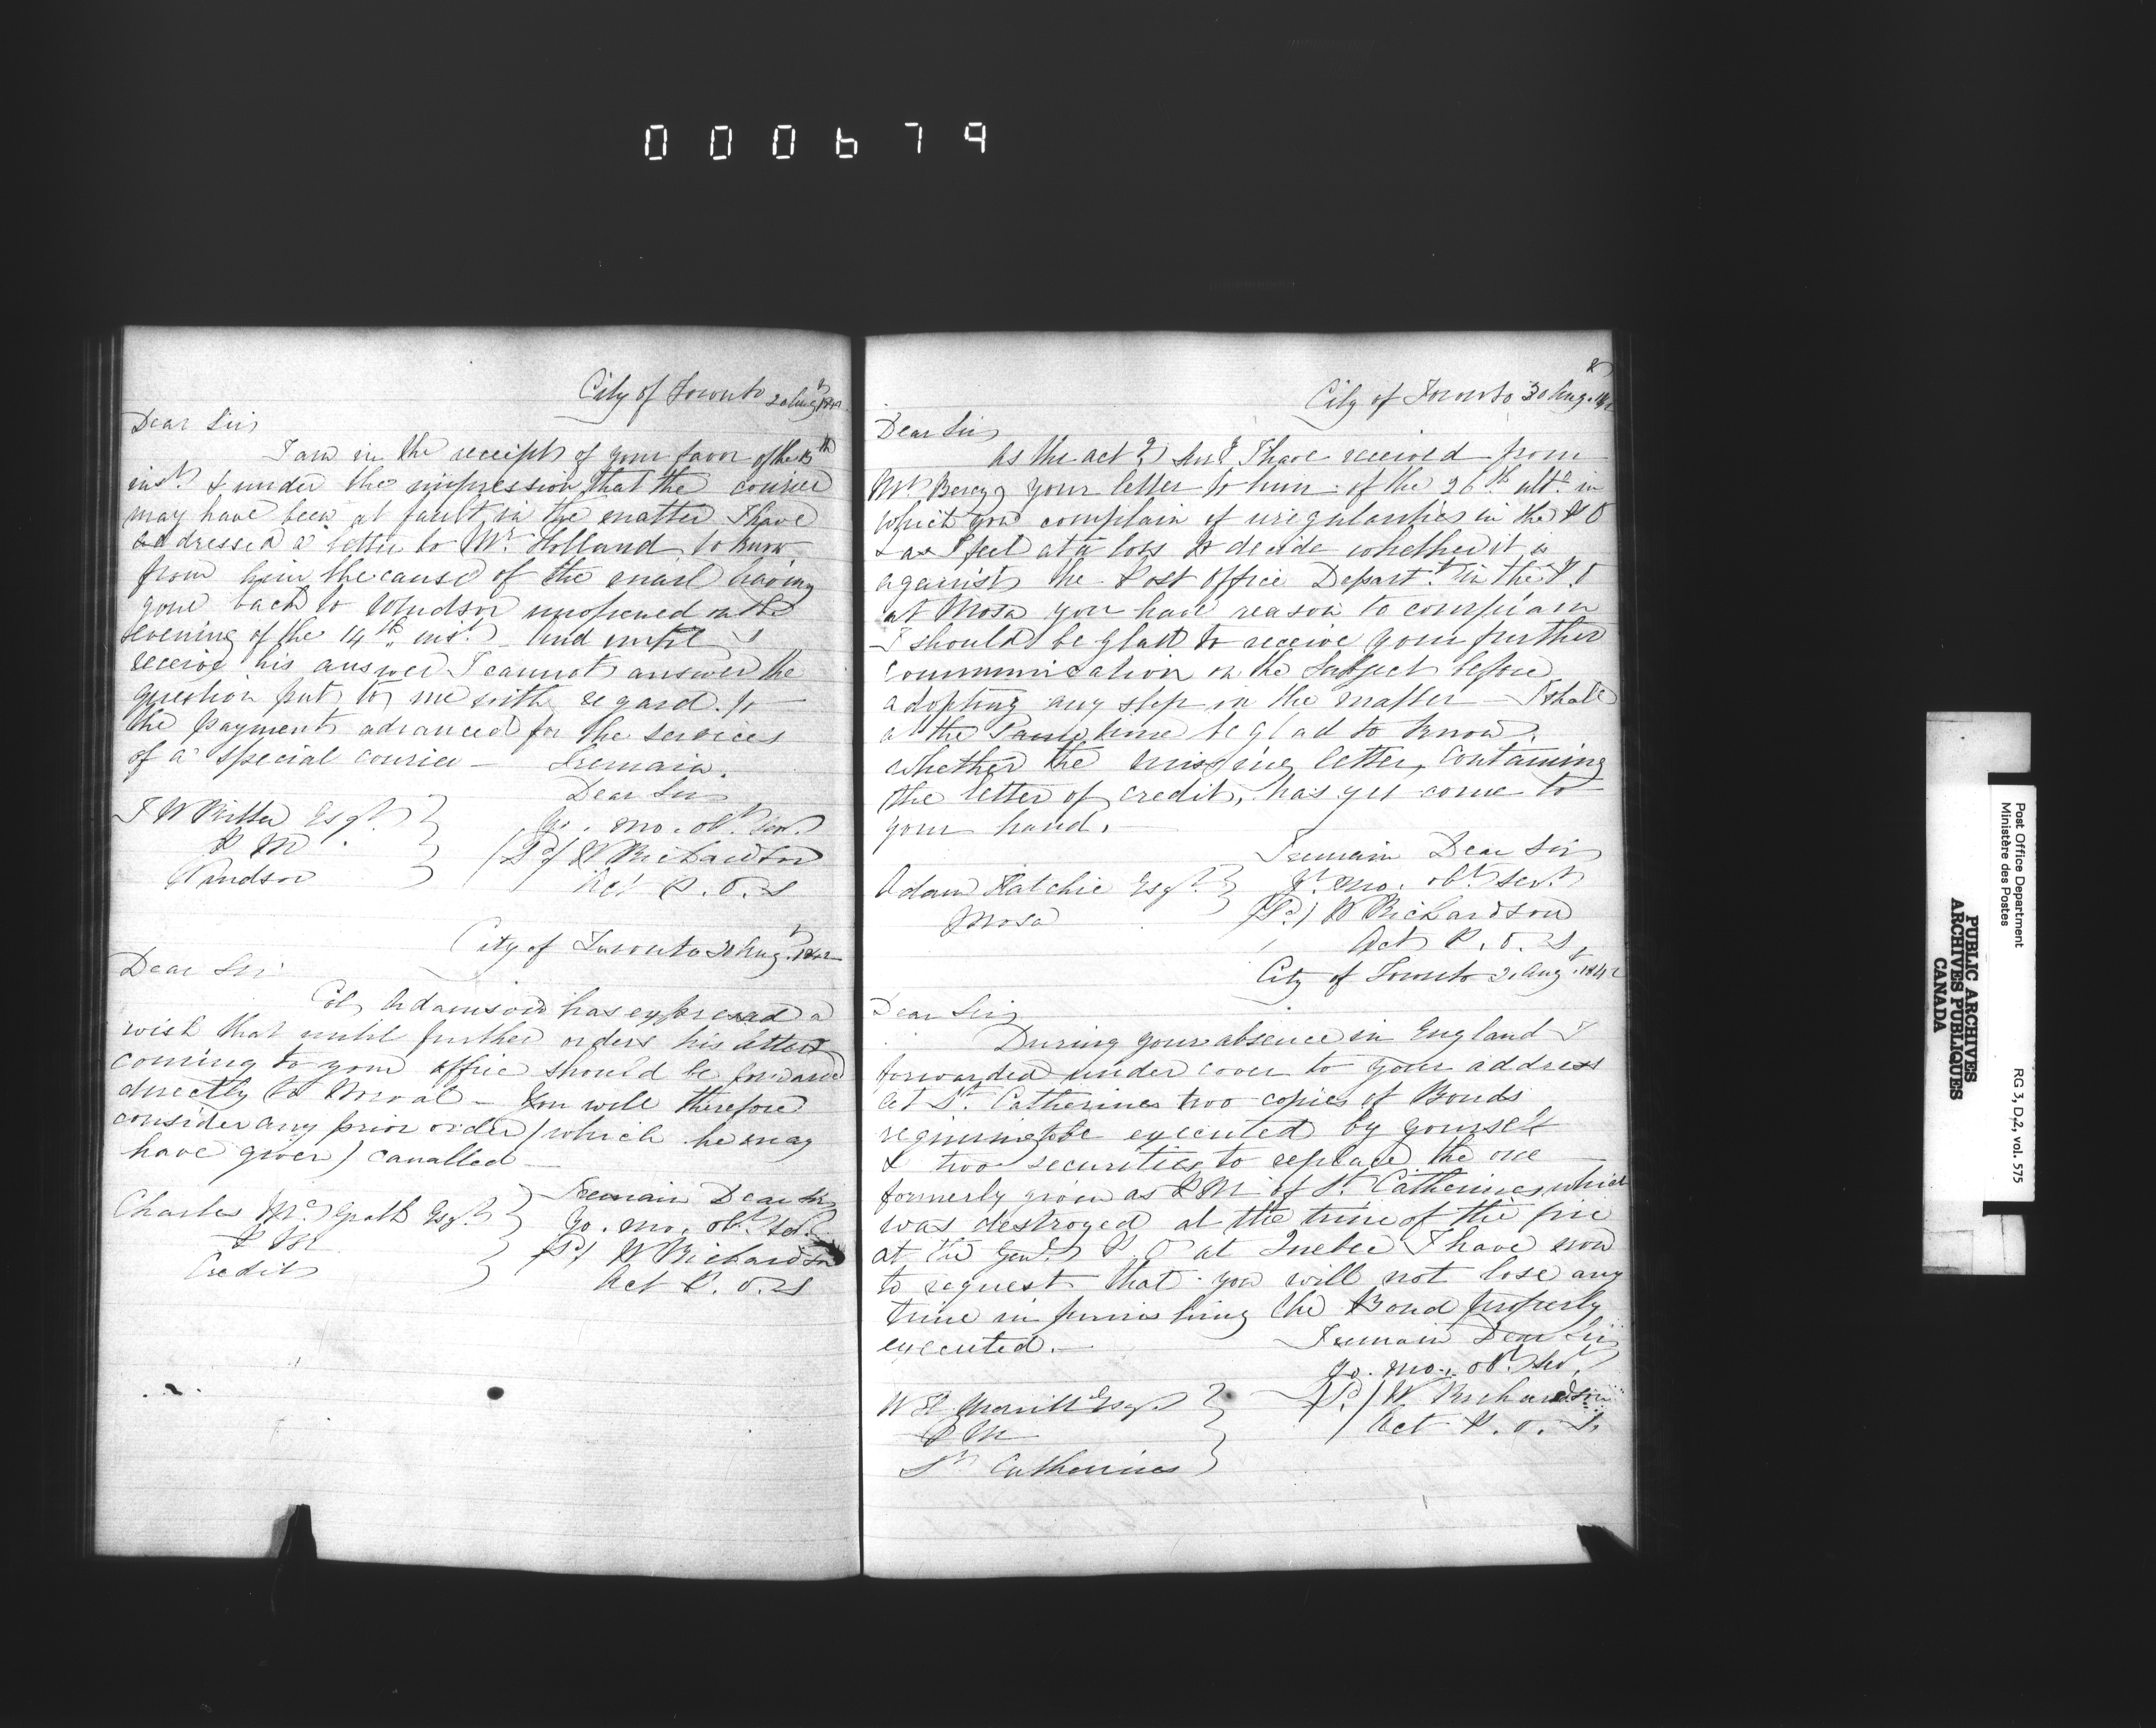 000679
City of Toronto 20 Aug 1842
Dear Sir
I am in the receipt of your favor of the 15th
inst. & under the impression that the courier
may have been at fault in the matter I have
addressed a letter to Mr. Holland to know
from him the cause of the mail having
gone back to Windsor unopened on the
evening of the 14th inst. And until I
receive his answer I cannot answer the
question put to me with regard to
the payment advanced for the services
of a special courier — I remain
Dear Sir
Yr. mo. obt. ser.
J W Esqr.
P M
Windsor
(Sd) W Richardson
Act P. O. S
City of Toronto Aug. 1842
Dear Sir
Col. Adamson has expressed a
wish that until further orders his letters
coming to your office should be forwarded
directly to — You will therefore
consider any prior order (which he may
have given) cancelled —
I remain Dear Sir
Yo. mo. obt. set.
Charles McGrath Esqr.
P M
Credit
(Sd) W Richardson
Act P. O. S
8
City of Toronto 30 Aug. 1842
Dear Sir
As the act g Sur I have received from
Mr Berczy your letter to him of the 26th ulto. in
which you complain of irregularities in the P O
& as I feel at a loss to decide whether it is
against the Post Office Depart.t in the P. O
at Mosa you have reason to complain
I should be glad to receive your further
communication on the Subject before
adopting any step in the matter — I shall
at the Same time be glad to know
whether the missing letter, containing
the letter of credit, has yet come to
your hand. —
I remain Dear Sir
Yr. mo. obt. sert.
Adam Hatchie Esqr.
Mosa
(Sd) W Richardson
Act P. O. S.
City of Toronto Aug. 1842
Dear Sir
During your absence in England I
forwarded under cover to your address
at St. Catherines two copies of Bonds
requiring to be executed by yourself
& two securities to replace the one
formerly given as P M of St. Catherines which
was destroyed at the time of the fire
at the Genl. P. O at Quebec I have now
to request that you will not lose any
time in furnishing the Bond properly
executed. —
I remain Dear Sir
yo. mo. obt. ser.
W H Merritt Esqr
P M
St Catherines
(Sd) W Richardson
Act P. O. S.
Post Office Department
Ministère des Postes
RG 3, D2, vol. 575
PUBLIC ARCHIVES
ARCHIVES PUBLIQUES
CANADA